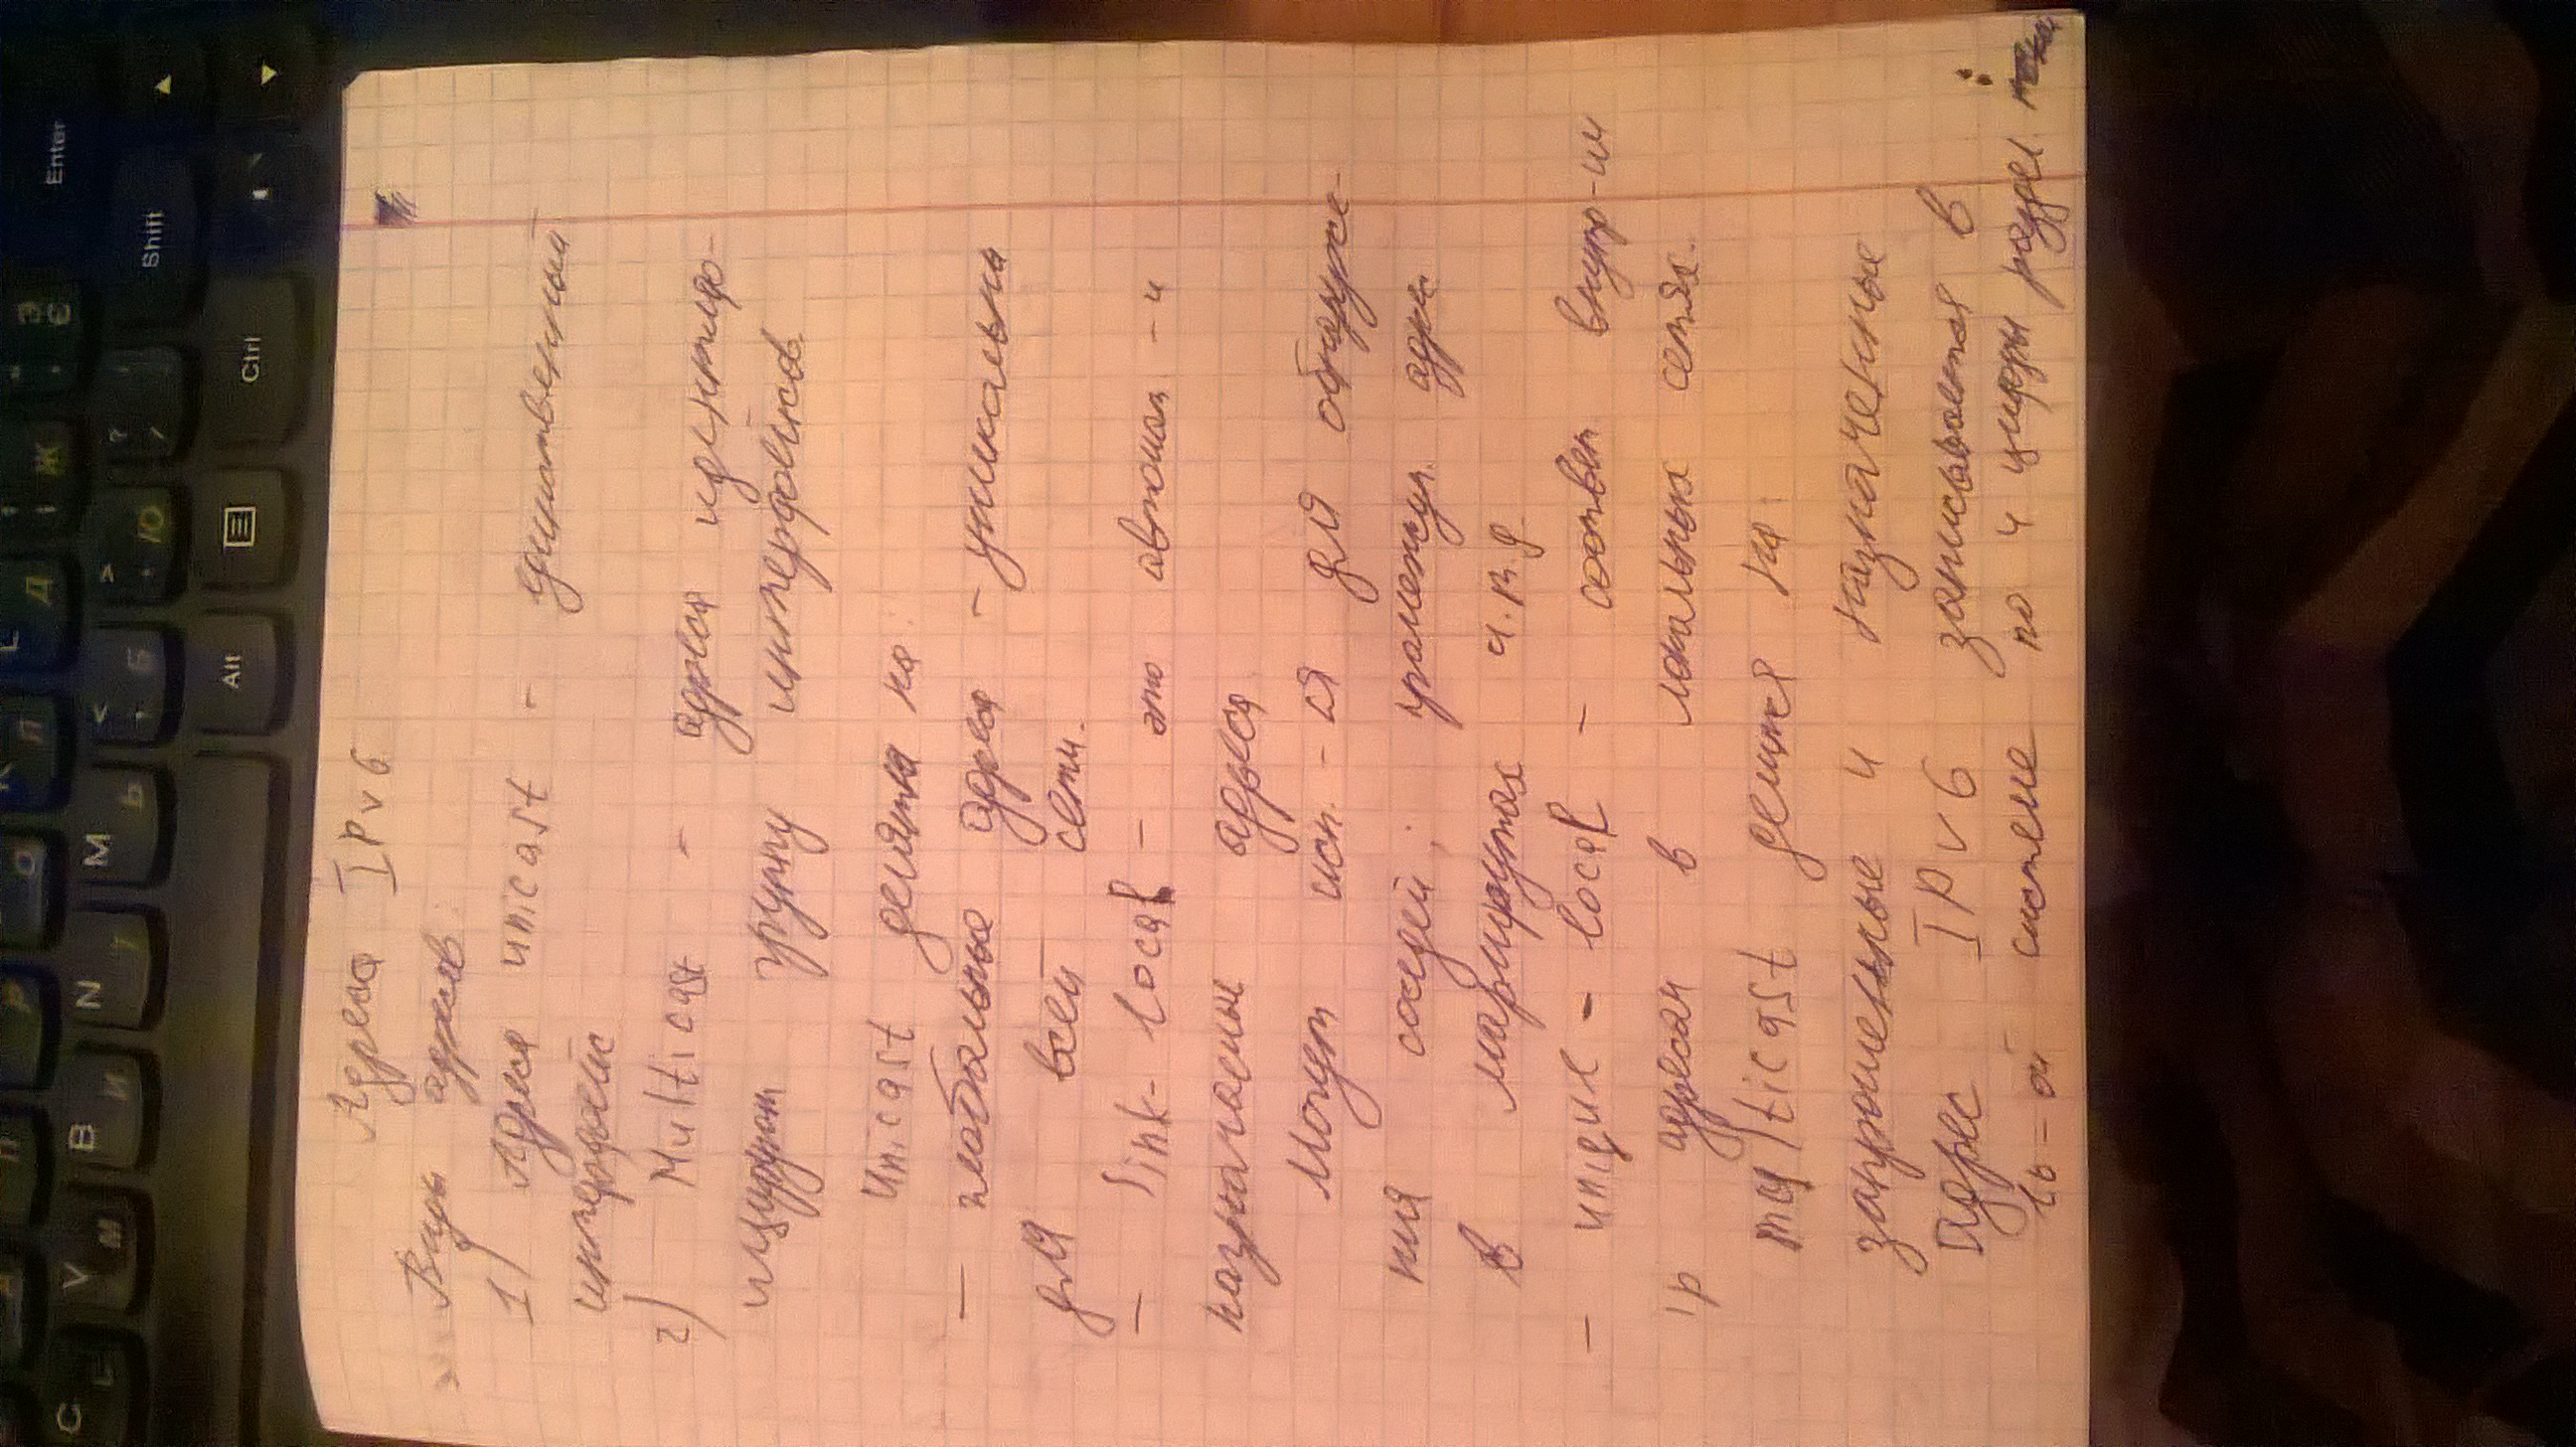 Адреса IPv6
Виды адресов:
1) Адреса unicast - единственный
интерфейс
2) Multicast - адреса иденти​фи-
цируют группу интерфейсов.
Unicast делятся на:
- глобальные адреса - уникальны
для всей сети.
- link-local - это автомат-и
назначаемые адреса
Могут исп-ся для обнаруже-
ния соседей,
в маршрутах и.т.д
- uniqui-local - соотвеn внутр-им
ip адресам в локальных сетях.
multicast делится на:
запрошенные и назначенные
Адрес IPv6 записывается в
16-ой системе по 4 цифры раздел.
Enter
Shift
Ctrl
Alt
Э
Є
Ж
Д
Ю
Б
Л
О
Ь
М
Т
N
И
B
М
V
С
C